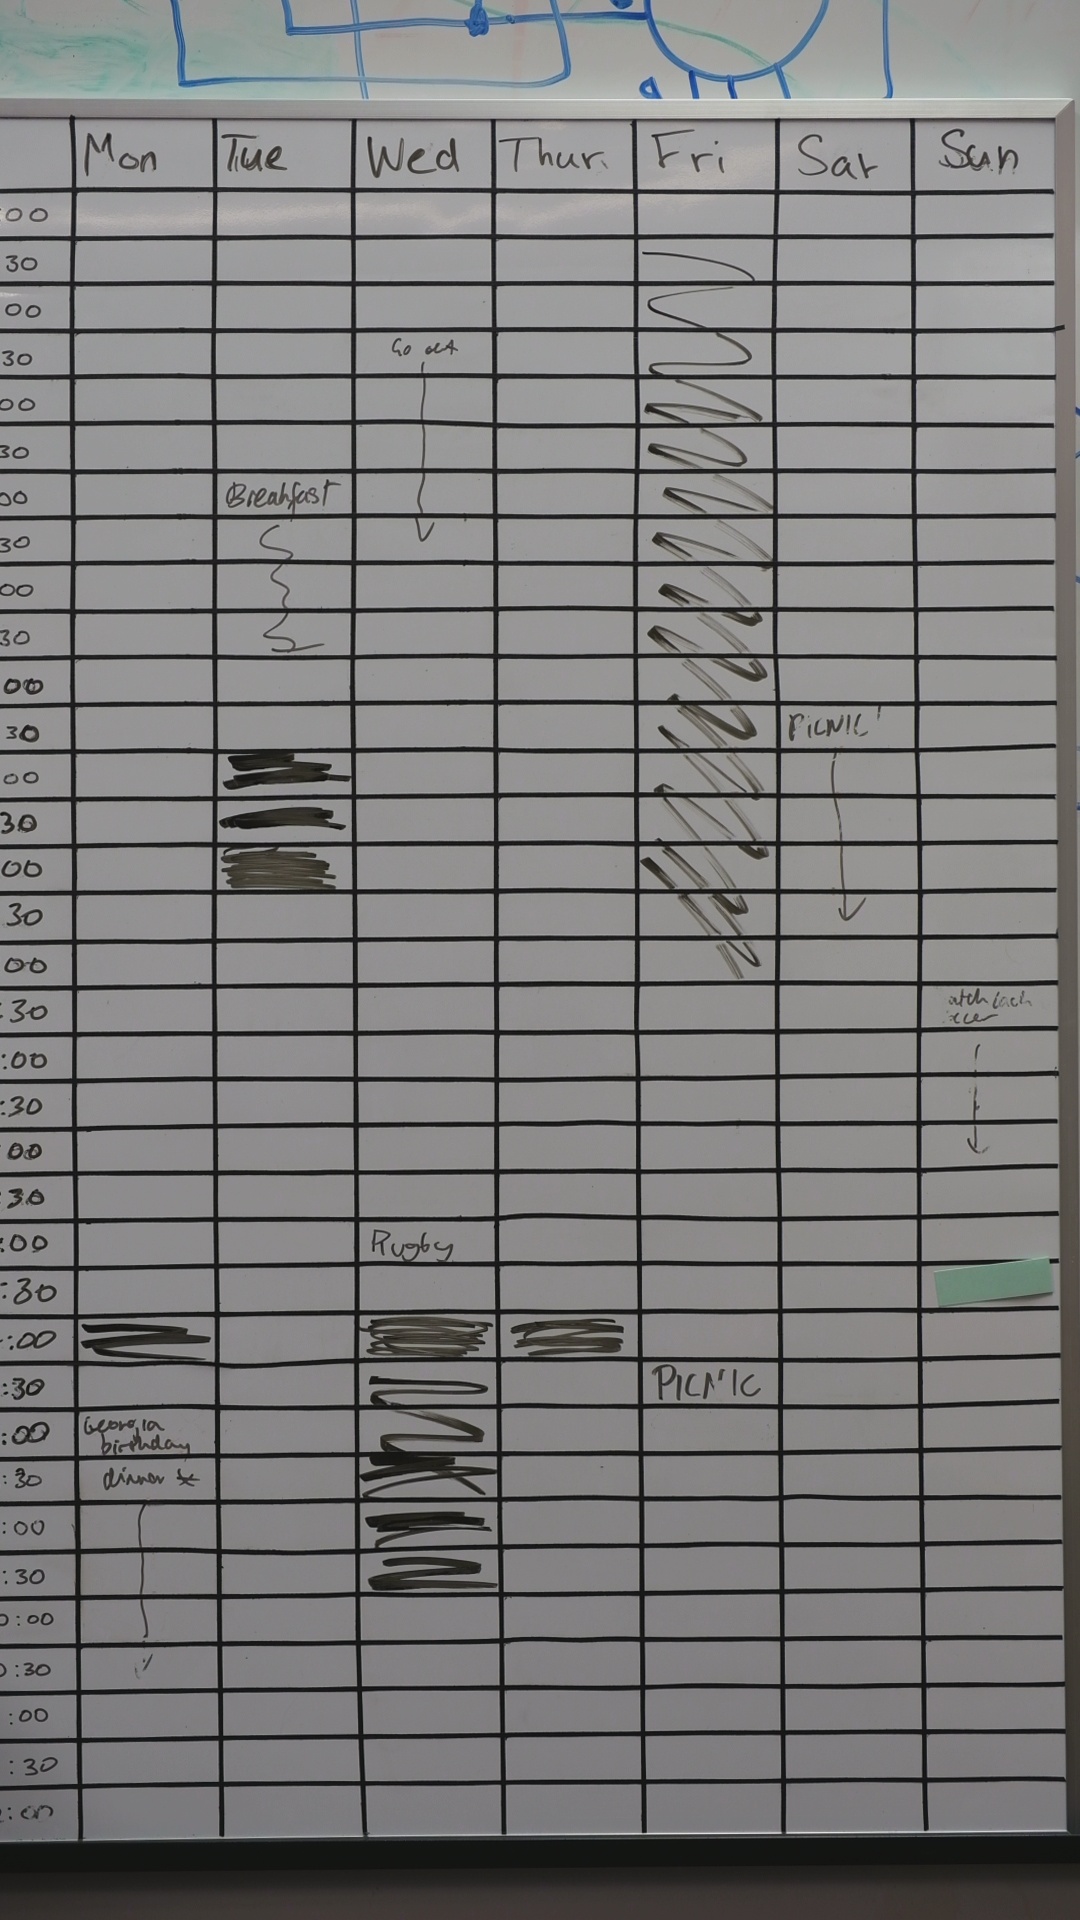 Mon Tue Wed Thur. Fri Sat Sun
:00
30
00
30 Go out
00
30
00 Breakfast
30
00
30
00
30 PICNIC
00
30
00
30
00
:30
:00
:30
00
:30
:00 Rugby
:30
:00
:30 PICNIC
:00 Georgia
birthday
:30 dinner
:00
:30
0:00
0:30
:00
:30
:00